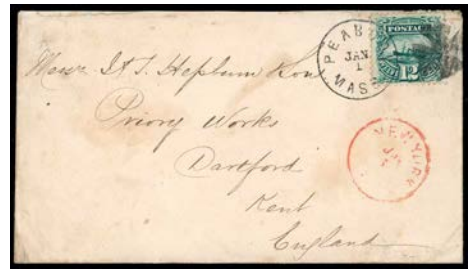 PEAB
JAN
1
MASS
POSTAGE
12
Messr. D. & J. Hepburn & Son
Priory Works
Dartford
Kent
England
NEW YORK